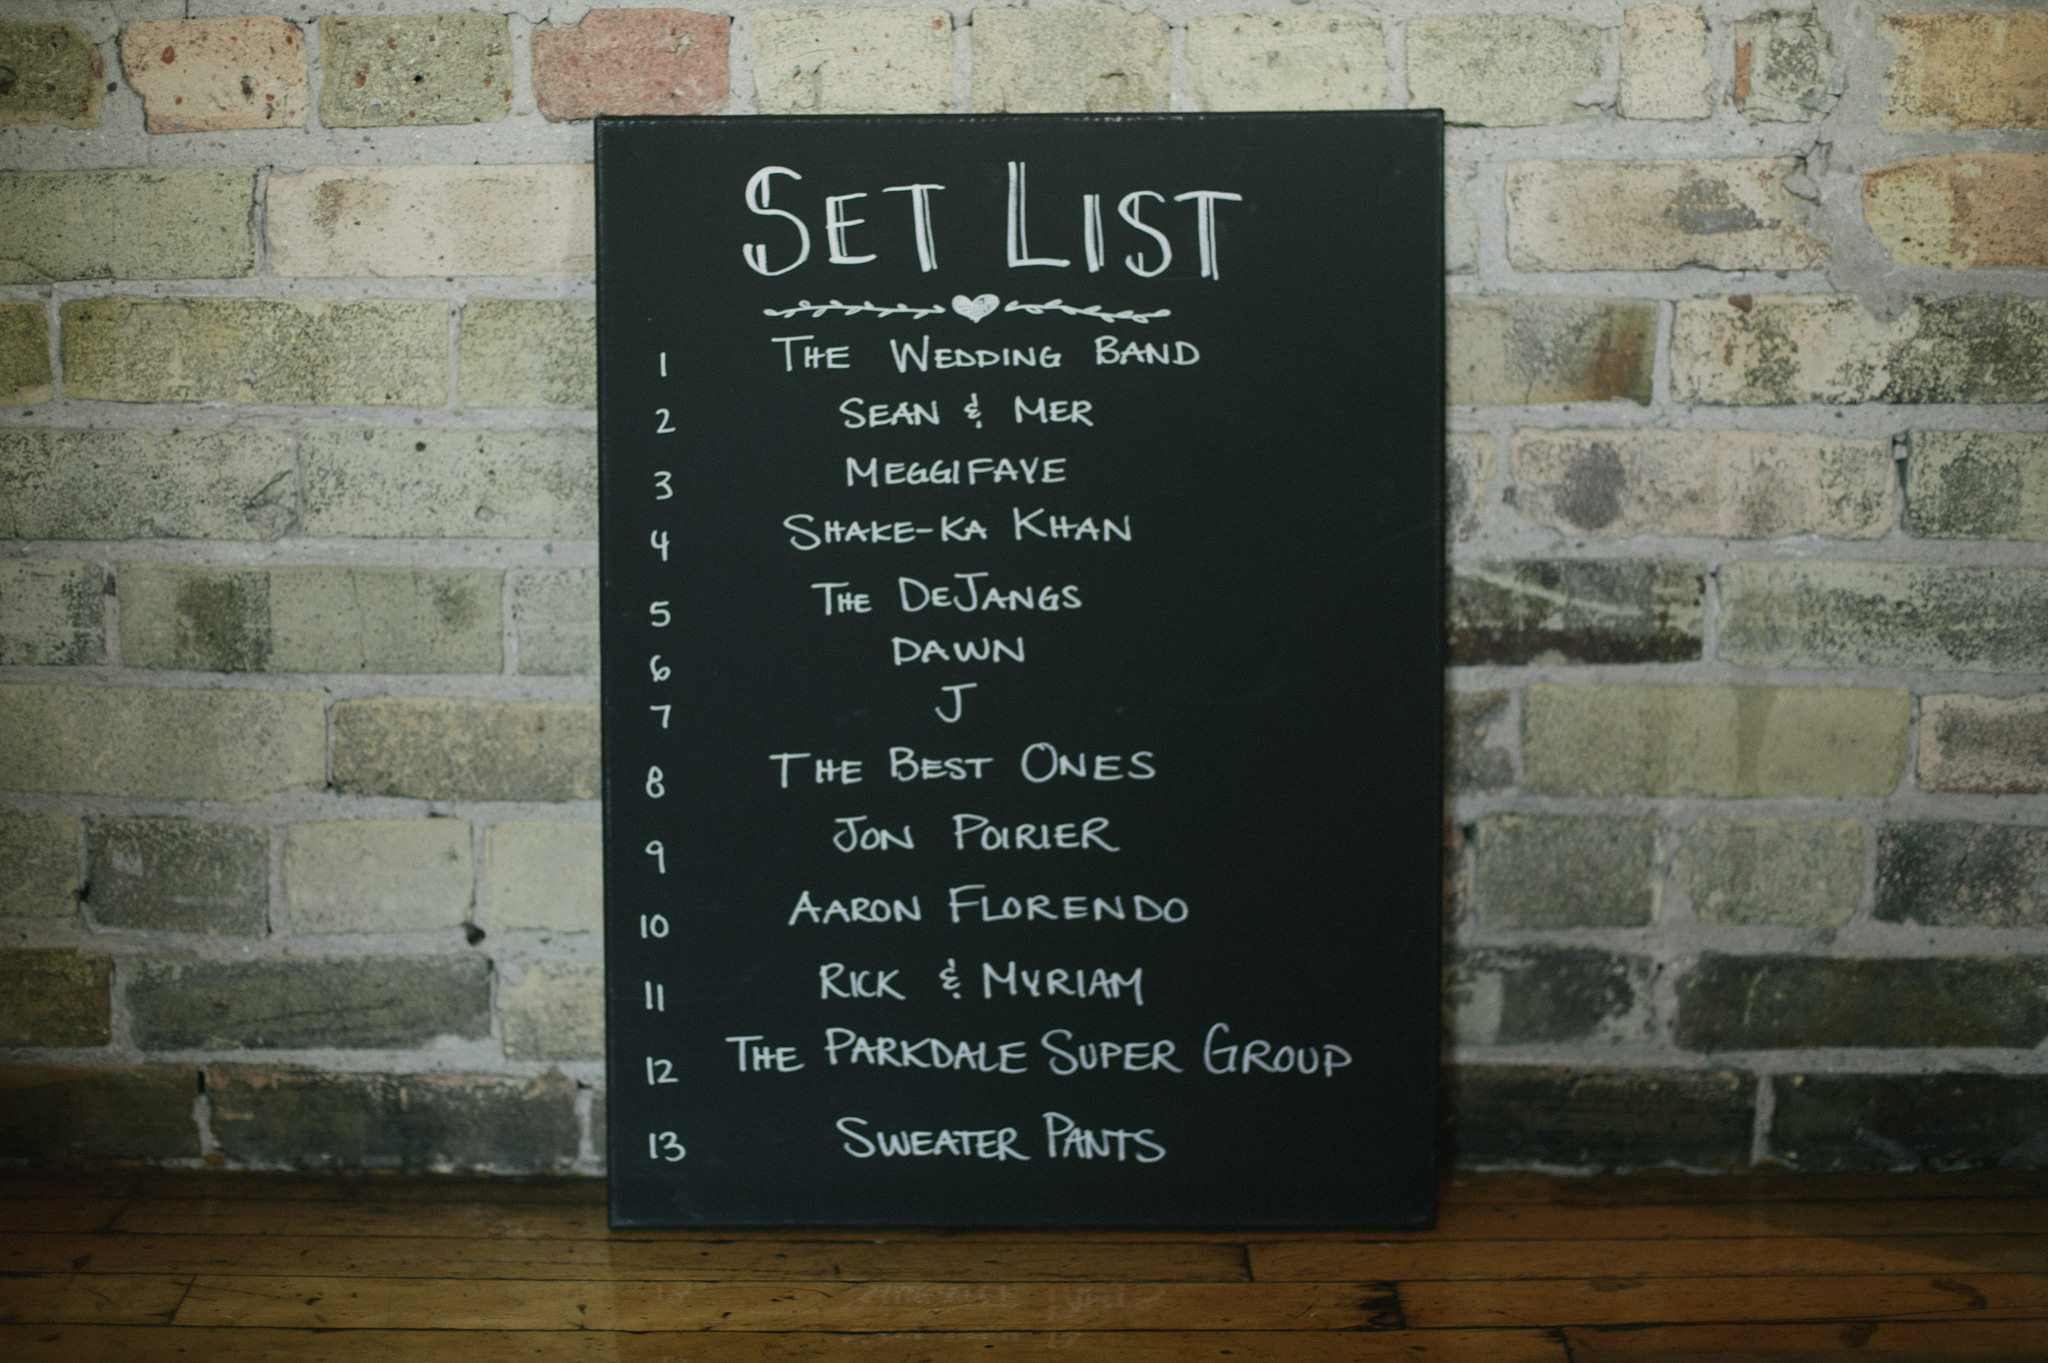 SET LIST
1 THE WEDDING BAND
2 SEAN & MER
3 MEGGIFAYE
4 SHAKE-KA KHAN
5 THE DEJANGS
6 DAWN
7 J
8 THE BEST ONES
9 JON POIRIER
10 AARON FLORENDO
11 RICK & MYRIAM
12 THE PARKDALE SUPER GROUP
13 SWEATER PANTS